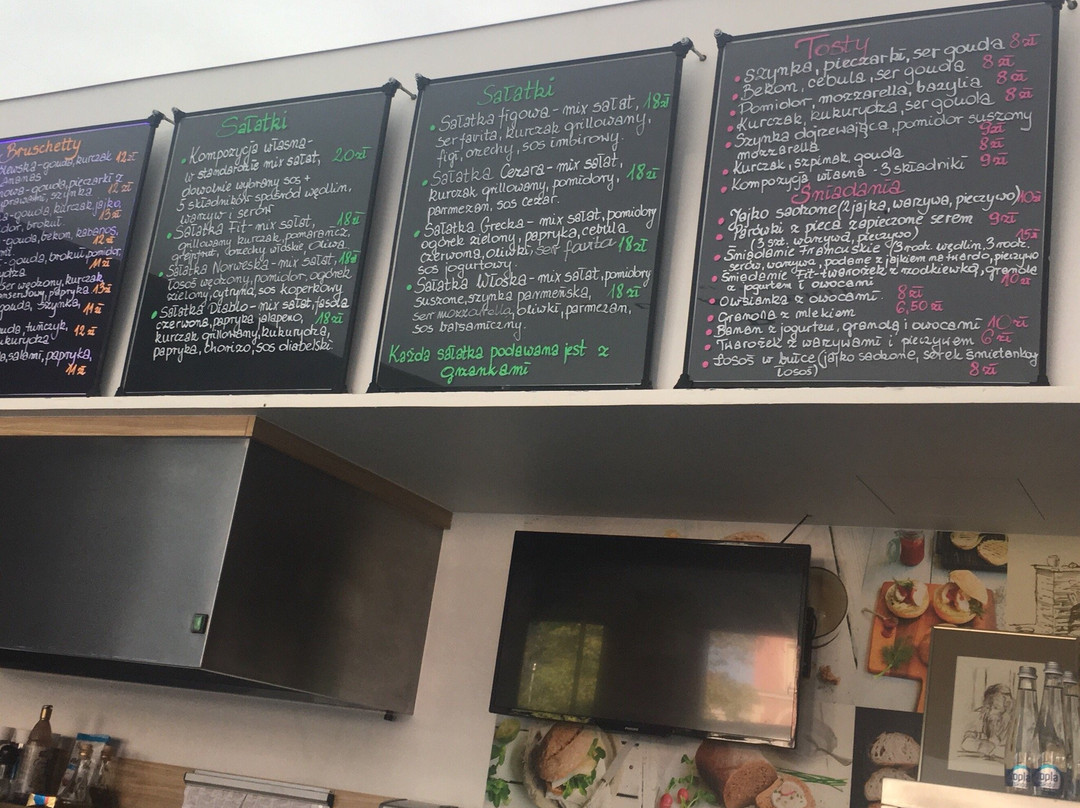 Bruschetty
gouda, kurczak 12 zł
ananas
gouda, pieczarki z
szynka 12 zł
gouda, kurczak, jajko,
pomidor, brokuł 13 zł
gouda, bekon, kabanos,
12 zł
gouda, brokuł, pomidor,
11 zł
ser wędzony, kurczak
konserwowy, papryka 13 zł
gouda, szynka,
11 zł
gouda, tuńczyk,
kukurydza 12 zł
salami, papryka,
11 zł
Sałatki
Kompozycja własna-
w standardzie mix sałat, 20 zł
dowolnie wybrany sos +
5 składników spośród wędlin,
warzyw i serów
Sałatka Fit- mix sałat, 18 zł
grillowany kurczak, pomarańcz,
grejpfrut, orzechy włoskie, oliwa.
Sałatka Norweska- mix sałat, 18 zł
łosoś wędzony, pomidor, ogórek
zielony, cytryna, sos koperkowy
Sałatka Diablo- mix sałat, fasola
czerwona, papryka jalapeno, 18 zł
kurczak grillowany, kukurydza,
papryka, chorizo, sos diabelski.
Sałatki
Sałatka figowa- mix sałat, 18 zł
ser favita, kurczak grillowany,
figi, orzechy, sos imbirowy.
Sałatka Cezara- mix sałat,
kurczak grillowany, pomidory, 18 zł
parmezan, sos cezar.
Sałatka Grecka- mix sałat, pomidory
ogórek zielony, papryka, cebula
czerwona, oliwki, ser favita 18 zł
sos jogurtowy.
Sałatka Włoska- mix sałat, pomidory
suszone, szynka parmeńska, 18 zł
ser mozzarella, oliwki, parmezan,
sos balsamiczny.
Każda sałatka podawana jest z
grzankami
Tosty
Szynka, pieczarki, ser gouda 8 zł
Bekon, cebula, ser gouda 8 zł
Pomidor, mozzarella, bazylia 8 zł
Kurczak, kukurydza, ser gouda 8 zł
Szynka dojrzewająca, pomidor suszony
mozzarella 9 zł
Kurczak, szpinak, gouda 8 zł
Kompozycja własna - 3 składniki 9 zł
Śniadania
Jajko sadzone (2 jajka, warzywa, pieczywo) 10 zł
Parówki z pieca zapieczone serem 9 zł
(3 szt. warzywa, pieczywo)
Śniadanie Francuskie (3 rodz. wędlin, 3 rodz. 15 zł
serów, warzywa, podane z jajkiem na twardo, pieczywo
Śniadanie Fit- twarożek z rzodkiewką, granola
z jogurtem i owocami 10 zł
Owsianka z owocami 8 zł
Granola z mlekiem 6,50 zł
Banan z jogurtem, granolą i owocami 10 zł
Twarożek z warzywami i pieczywem 6 zł
Łosoś w bułce (jajko sadzone, serek śmietankowy
łosoś) 8 zł